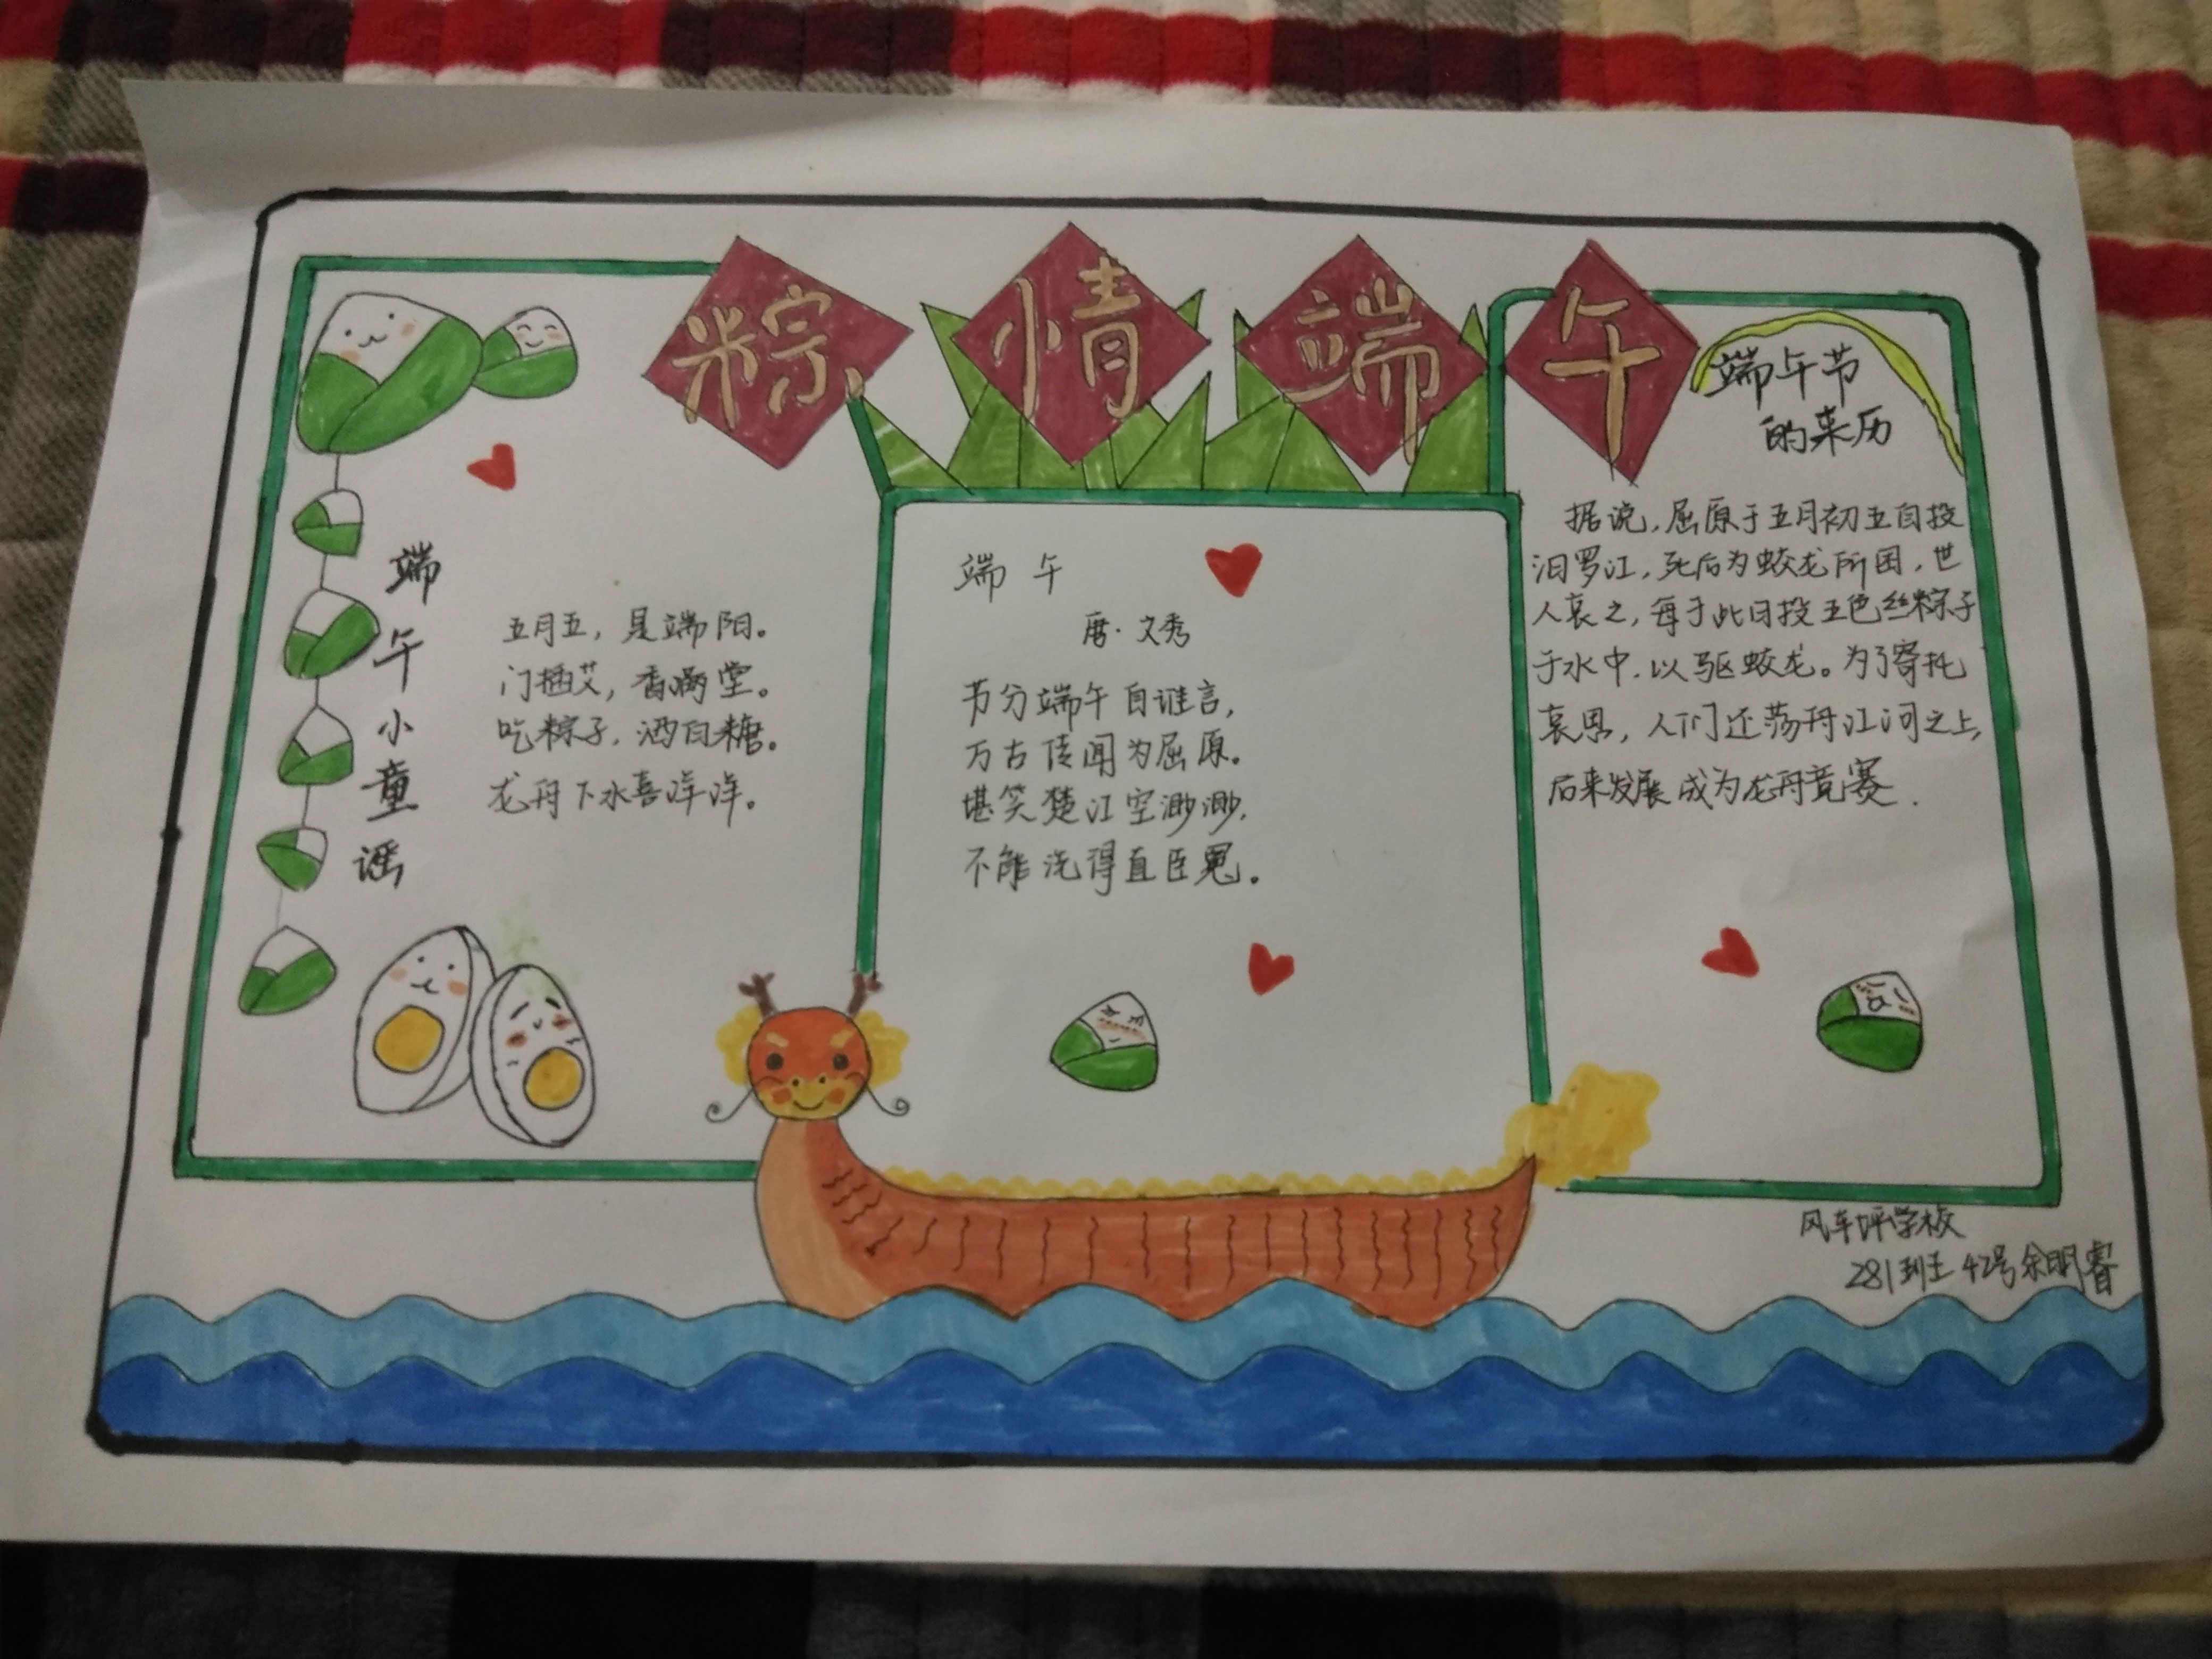 粽情端午
端午小童谣
五月五，是端阳。
门插艾，香满堂。
吃粽子，洒白糖。
龙舟下水喜洋洋。
端午
唐·文秀
节分端午自谁言，
万古传闻为屈原。
堪笑楚江空渺渺，
不能洗得直臣冤。
端午节
的来历
据说，屈原于五月初五自投
汨罗江，死后为蛟龙所困，世
人哀之，每于此日投五色丝粽子
于水中.以驱蛟龙。为了寄托
哀思，人们还荡舟江河之上，
后来发展成为龙舟竞赛.
风车坪学校
281班 42号余明睿